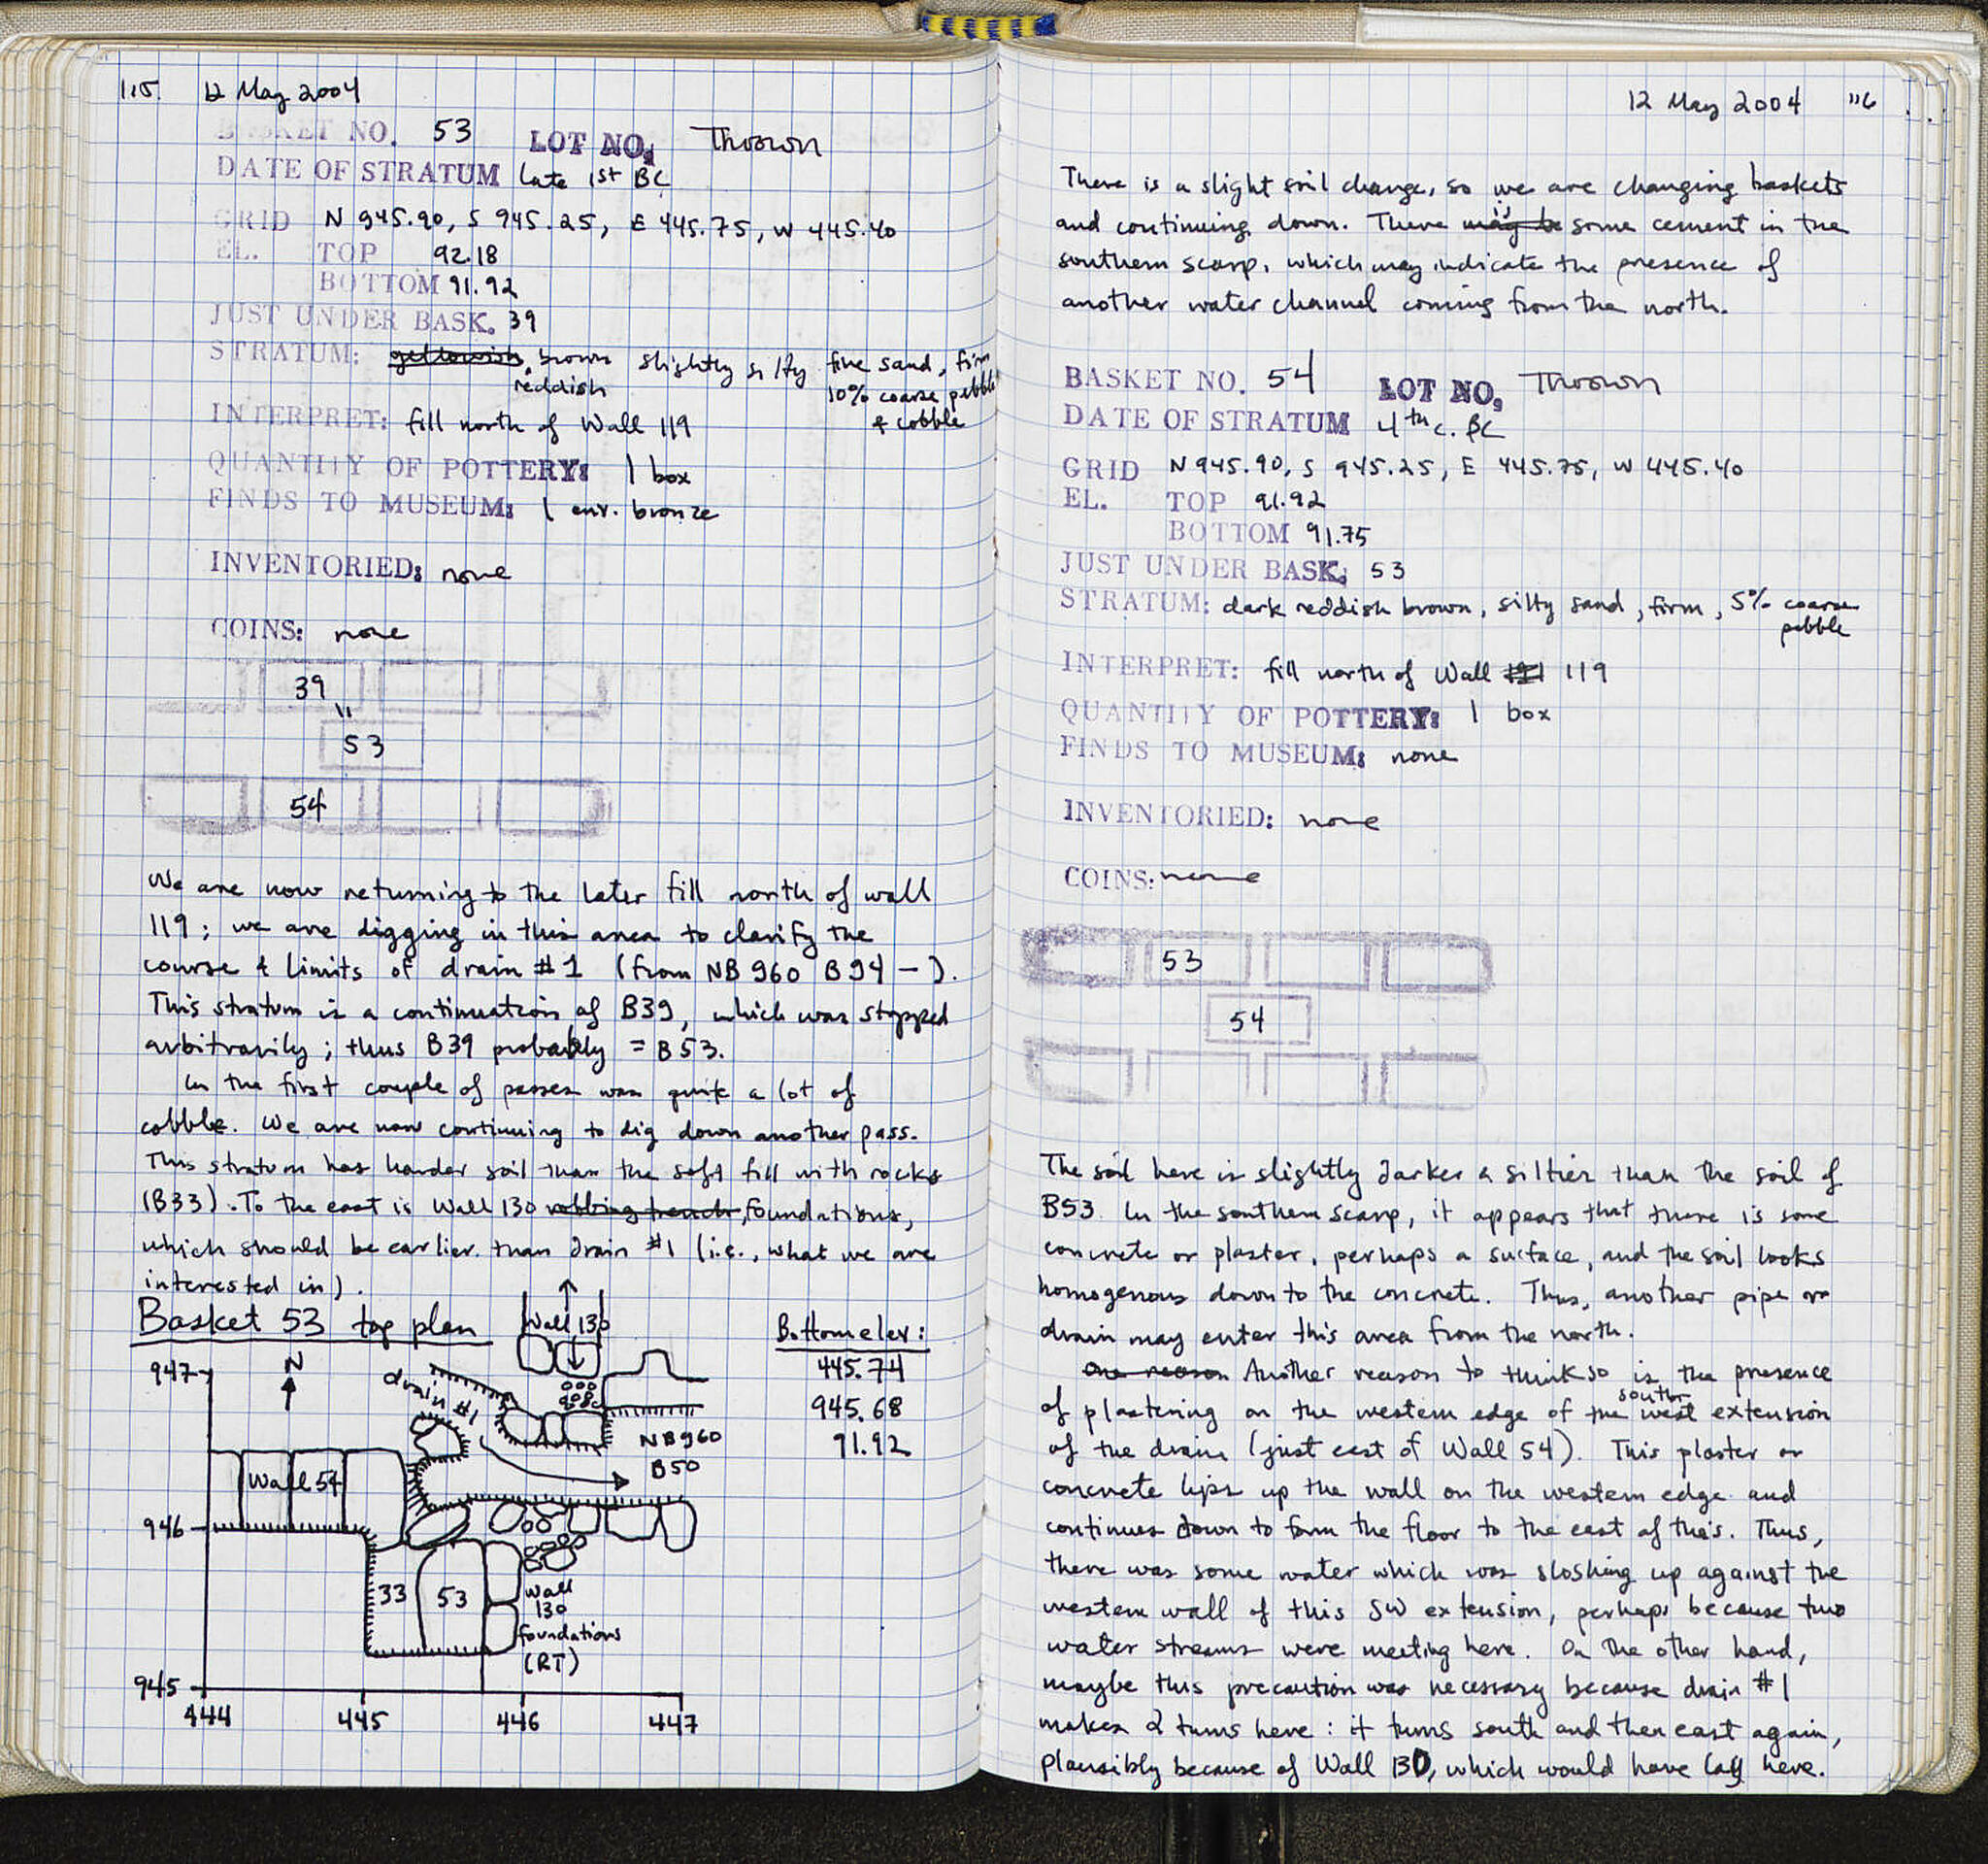 115. 12 May 2004
BASKET NO. 53 LOT NO. Thrown
DATE OF STRATUM late 1st BC
GRID N 945.90, S 945.25, E 445.75, W 445.40
EL. TOP 92.18
BOTTOM 91.92
JUST UNDER BASK. 39
STRATUM: yellowish brown slightly silty fine sand, firm
reddish 10% coarse pebble
& cobble
INTERPRET: fill north of Wall 119
QUANTITY OF POTTERY: 1 box
FINDS TO MUSEUM: 1 env. bronze
INVENTORIED: none
COINS: none
39
"
53
54
We are now returning to the later fill north of wall
119; we are digging in this area to clarify the
course & limits of drain #1 (from NB 960 B94 - ).
This stratum is a continuation of B39, which was stopped
arbitrarily; thus B39 probably = B53.
In the first couple of passes was quite a lot of
cobble. We are now continuing to dig down another pass.
This stratum has harder soil than the soft fill with rocks
(B33). To the east is Wall 130 robbing trench, foundations,
which should be earlier than drain #1 (i.e., what we are
interested in).
Basket 53 top plan
Bottom elev:
445.74
945.68
91.92
Wall 130
947
N
drain #1
NB960
B50
Wall 54
946
33
53
Wall
130
foundations
(RT)
945
444
445
446
447
12 May 2004 116
There is a slight soil change, so we are changing baskets
and continuing down. There may be is some cement in the
southern scarp, which may indicate the presence of
another water channel coming from the north.
BASKET NO. 54 LOT NO. Thrown
DATE OF STRATUM 4th c. BC
GRID N 945.90, S 945.25, E 445.75, W 445.40
EL. TOP 91.92
BOTTOM 91.75
JUST UNDER BASK. 53
STRATUM: dark reddish brown, silty sand, firm, 5% coarse
pebble
INTERPRET: fill north of Wall 119
QUANTITY OF POTTERY: 1 box
FINDS TO MUSEUM: none
INVENTORIED: none
COINS: none
53
54
The soil here is slightly darker & siltier than the soil of
B53. In the southern scarp, it appears that there is some
concrete or plaster, perhaps a surface, and the soil looks
homogenous down to the concrete. Thus, another pipe or
drain may enter this area from the north.
One reason Another reason to think so is the presence
of plastering on the western edge of the southwest extension
of the drain (just east of Wall 54). This plaster or
concrete lips up the wall on the western edge and
continues down to form the floor to the east of this. Thus,
there was some water which was sloshing up against the
western wall of this SW extension, perhaps because two
water streams were meeting here. On the other hand,
maybe this precaution was necessary because drain #1
makes 2 turns here: it turns south and then east again,
plausibly because of Wall 130, which would have lay here.